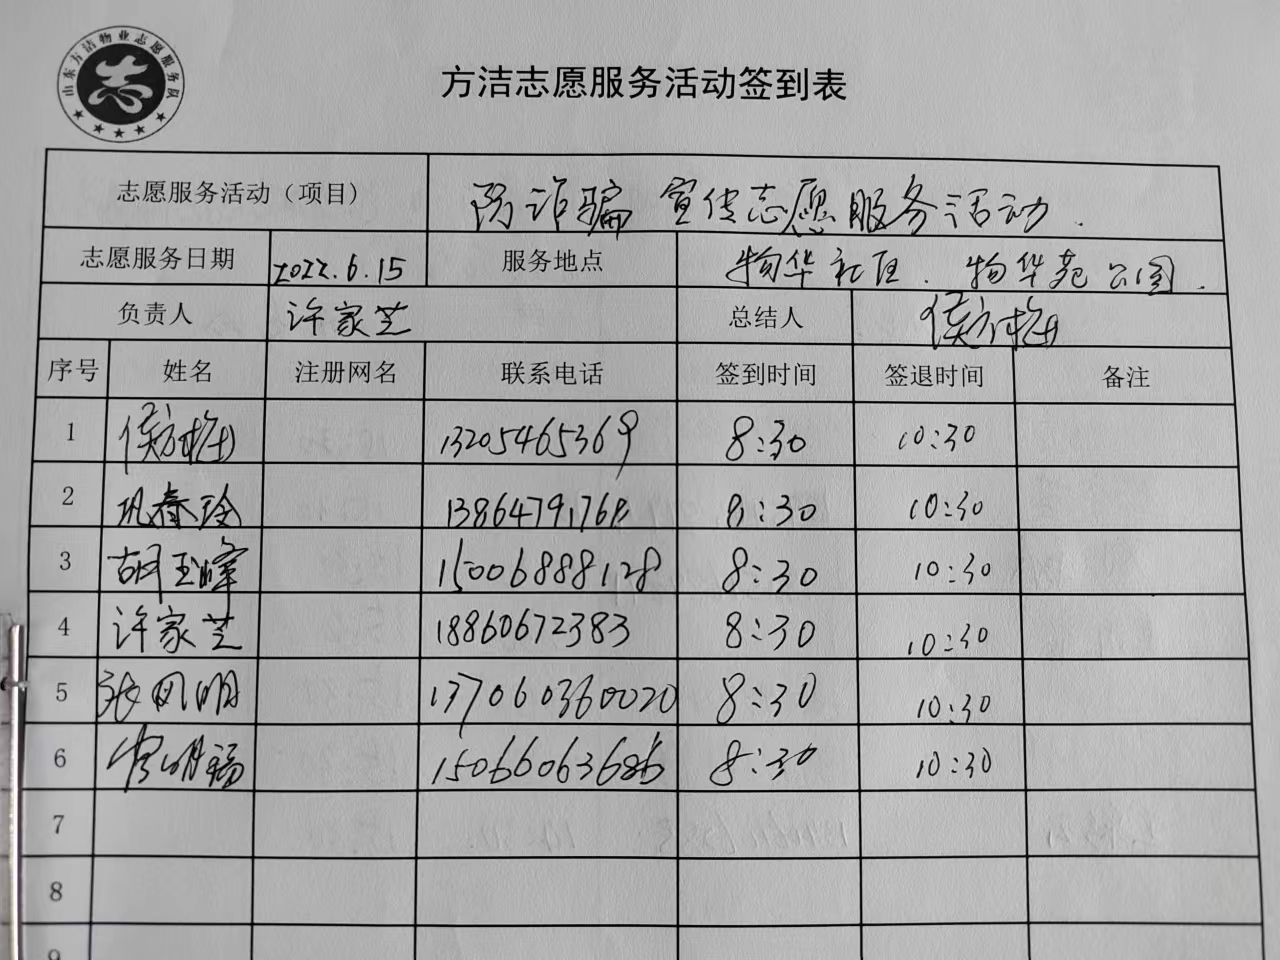 山东方洁物业志愿服务队
志
方洁志愿服务活动签到表
志愿服务活动（项目） 防诈骗宣传志愿服务活动.
志愿服务日期 2022.6.15 服务地点 物华社区.物华苑公园.
负责人 许家芝 总结人 侯方梅
序号 姓名 注册网名 联系电话 签到时间 签退时间 备注
1 侯方梅 13205465369 8:30 10:30
2 巩春玲 8:30 10:30
3 胡玉峰 15006888128 8:30 10:30
4 许家芝 18860672383 8:30 10:30
5 张凤明 137060360020 8:30 10:30
6 15066063686 8:30 10:30
7
8
9